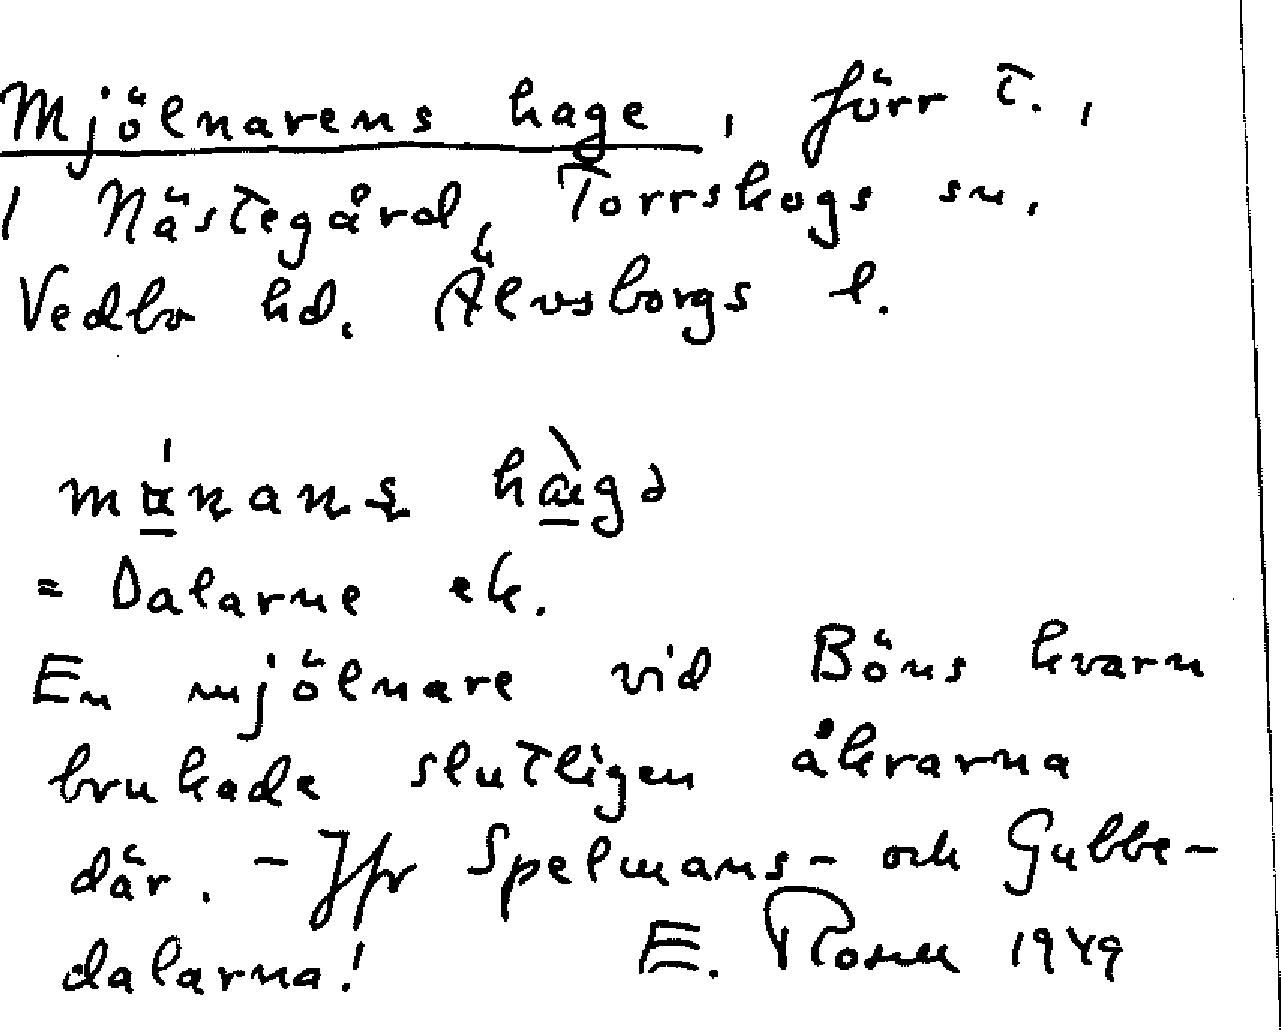 Mjölnarens hage, förr t.,
1 Nästegård, Torrskogs sn,
Vedbo hd, Älvsborgs l.
= Dalarne ek.
En mjölnare vid Böns kvarn
brukade slutligen åkrarna
där. - Jfr Spelmans- och Gubbe-
dalarna! E. Rosell 1949